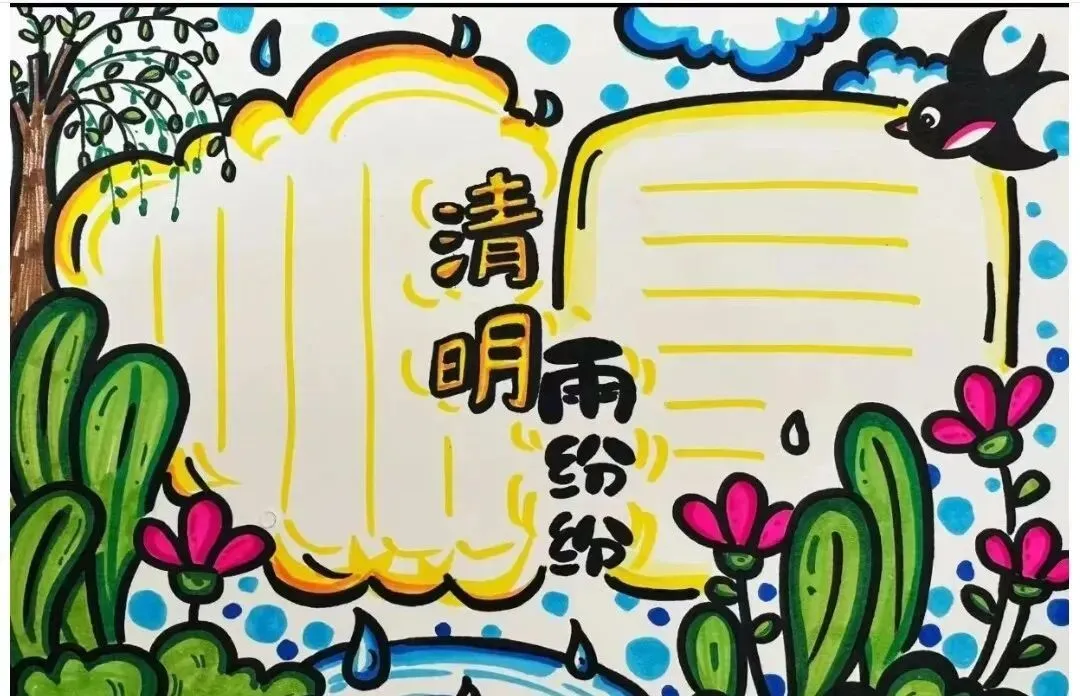 清明
雨纷纷